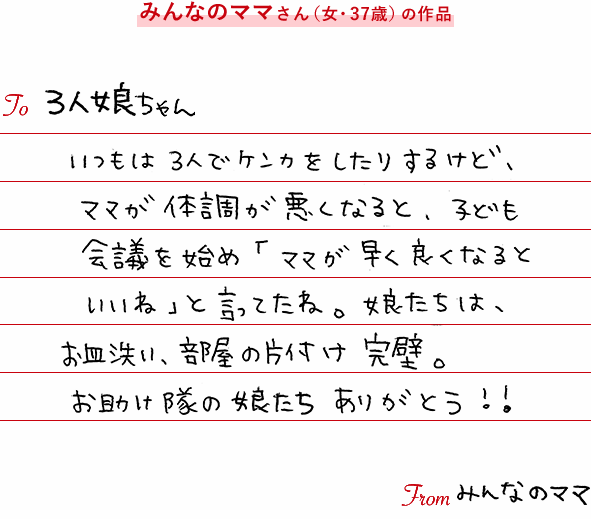 みんなのママさん（女・37歳）の作品
To 3人娘ちゃん
いつもは3人でケンカをしたりするけど、
ママが体調が悪くなると、子ども
会議を始め「ママが早く良くなると
いいね」と言ってたね。娘たちは、
お皿洗い、部屋の片付け完璧。
お助け隊の娘たちありがとう!!
From みんなのママ